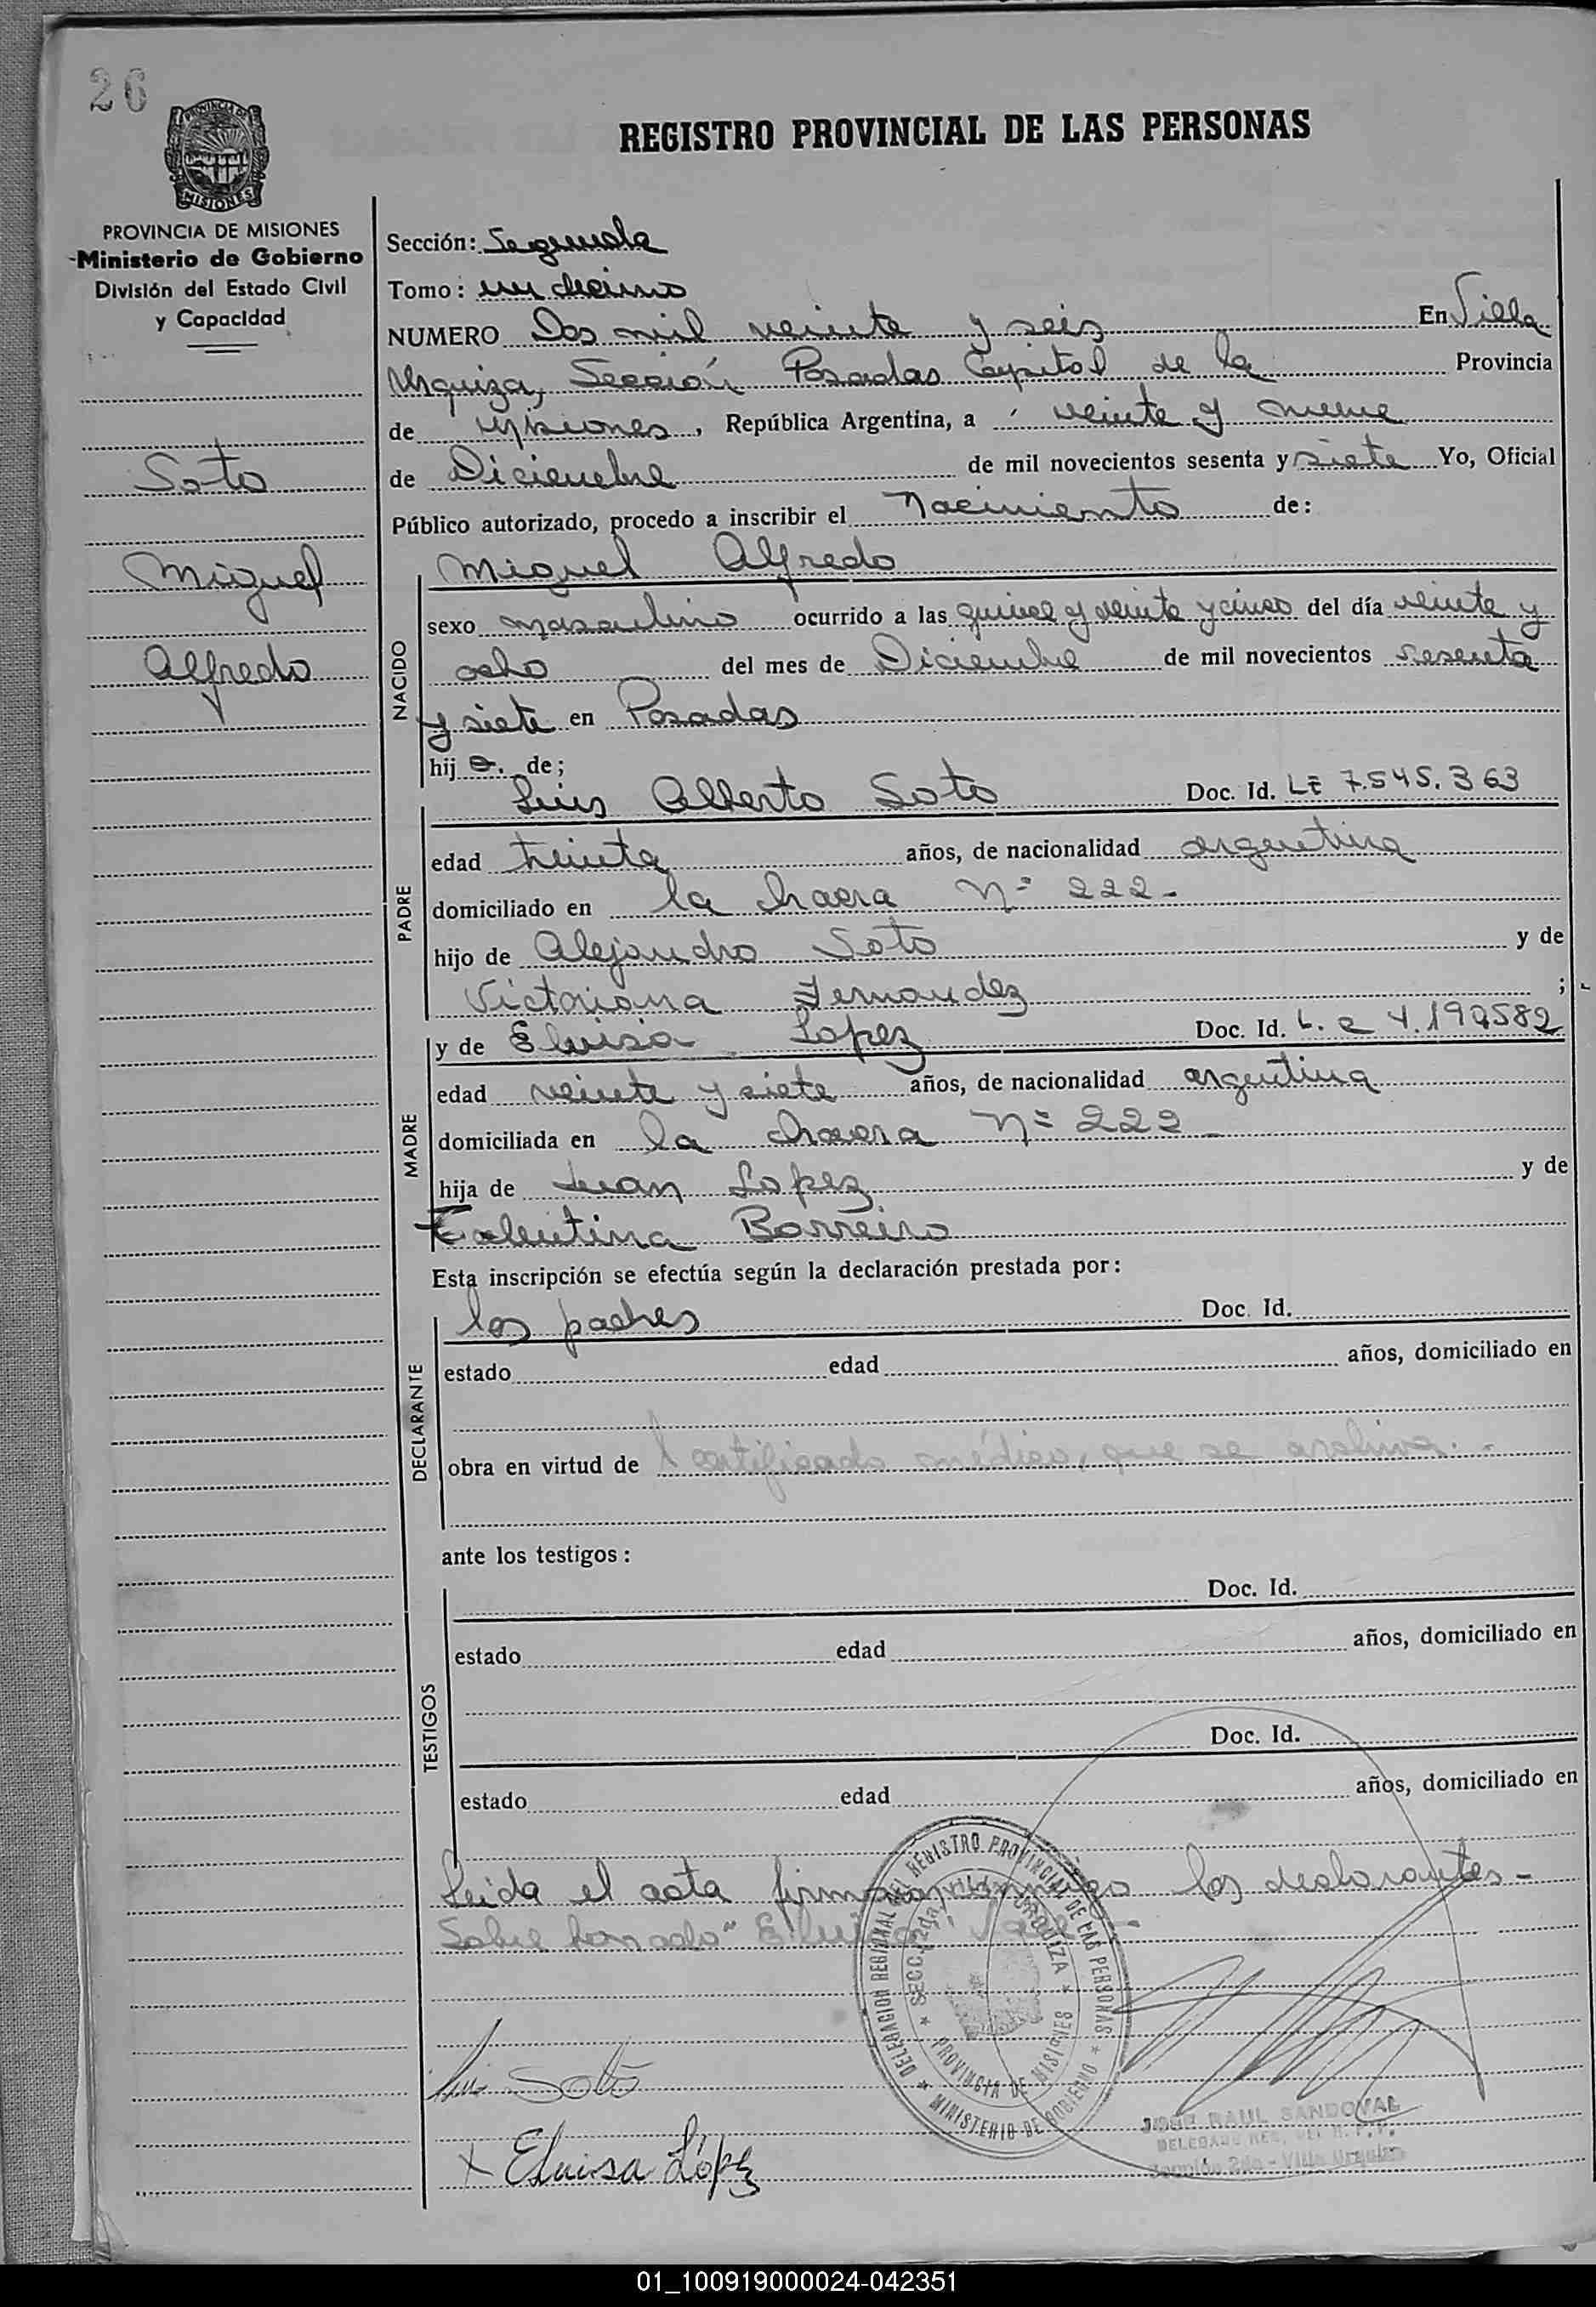 26
PROVINCIA DE MISIONES
REGISTRO PROVINCIAL DE LAS PERSONAS
PROVINCIA DE MISIONES
Ministerio de Gobierno
División del Estado Civil
y Capacidad
Soto
Miguel
Alfredo
Sección: Segunda
Tomo: undecimo
NUMERO Dos mil veinte y seis En Villa
Urquiza, Sección Posadas Capital de la Provincia
de Misiones, República Argentina, a veinte y nueve
de Diciembre de mil novecientos sesenta y siete Yo, Oficial
Público autorizado, procedo a inscribir el Nacimiento de:
NACIDO
Miguel Alfredo
sexo masculino ocurrido a las quince y veinte y cinco del día veinte y
ocho del mes de Diciembre de mil novecientos sesenta
y siete en Posadas
hijo. de;
PADRE
Luis Alberto Soto Doc. Id. LE 7.545.363
edad treinta años, de nacionalidad argentina
domiciliado en la chacra Nº 222-
hijo de Alejandro Soto y de
Victoriana Fernandez ;
MADRE
y de Eluisa Lopez Doc. Id. L. C 4.190582
edad veinte y siete años, de nacionalidad argentina
domiciliada en la chacra Nº 222
hija de Juan Lopez y de
Barreiro
Esta inscripción se efectúa según la declaración prestada por:
DECLARANTE
los padres Doc. Id.
estado edad años, domiciliado en
obra en virtud de certificado médico, que se archiva.-
ante los testigos:
TESTIGOS
Doc. Id.
estado edad años, domiciliado en
Doc. Id.
estado edad años, domiciliado en
Leida el acta firman conmigo los declarantes-
Sobre borrado "Eluisa" Vale-
DELEGACION REGIONAL DEL REGISTRO PROVINCIAL DE LAS PERSONAS * MINISTERIO DE GOBIERNO *
* SECC. 2da. VILLA URQUIZA * PROVINCIA DE MISIONES
Luis Soto
X Eluisa López
JORGE RAUL SANDOVAL
DELEGADO REG. DEL R. P. P.
Sección 2da - Villa Urquiza
01_100919000024-042351